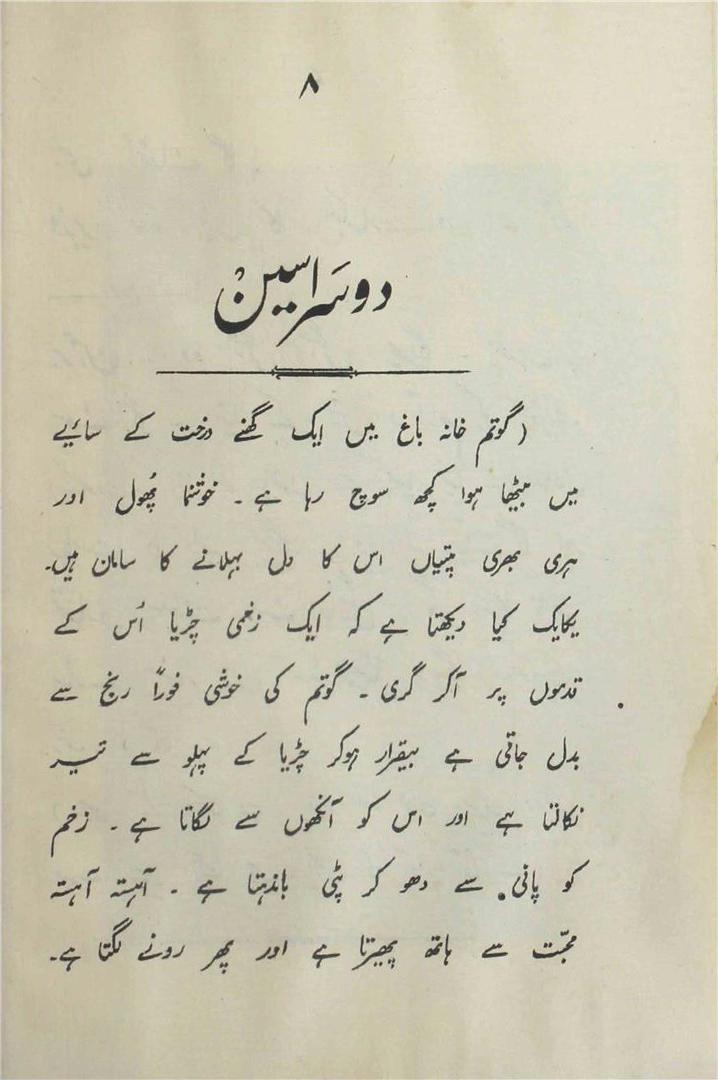 ۸
دوسرا سین
(گوتم خانہ باغ میں ایک گھنے درخت کے سائیے
میں بیٹھا ہوا کچھ سوچ رہا ہے ۔ خوشنما پھول اور
ہری بھری پتیاں اس کا دل بہلانے کا سامان ہیں۔
یکایک کیا دیکھتا ہے کہ ایک زخمی چڑیا اُس کے
قدموں پر آکر گری ۔ گوتم کی خوشی فوراً رنج سے
بدل جاتی ہے بیقرار ہوکر چڑیا کے پہلو سے تیر
نکالتا ہے اور اس کو آنکھوں سے لگاتا ہے ۔ زخم
کو پانی سے دھو کر پٹی باندہتا ہے ۔ آہستہ آہستہ
محبّت سے ہاتھ پھیرتا ہے اور پھر رونے لگتا ہے۔